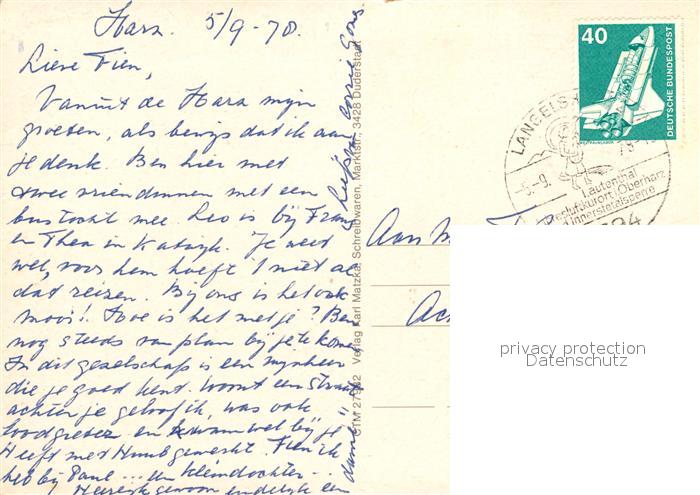 Harz 5/9-78.
Lieve Fien,
Vanuit de Harz mijn
groeten, als bewijs dat ik aan
je denk. Ben hier met
twee vriendinnen met een
bustocht mee. Leo is bij Frans
en Thea in Katwijk. Je weet
wel, voor hem hoeft 't niet al
dat reizen. Bij ons is het ook
mooi! Hoe is het met je? Ben
nog steeds van plan bij je te komen
In dit gezelschap is een mijnheer
die je goed kent. Woont een straat
achter je geloof ik, was ook
loodgieter en kwam wel bij je
Heeft met Huub gewerkt. Fien ik
heb bij Paul ... een kleindochter...
Heerlijk gewoon eindelijk een
dame"
CTM 27982 Verlag Karl Matzka, Schreibwaren, Marktstr., 3428 Duderstadt
40
DEUTSCHE BUNDESPOST
LANGELS
-5.-9.
78-
Lautenthal
Luftkurort Oberharz
Innerstetalsperre
Aan M
privacy protection
Datenschutz